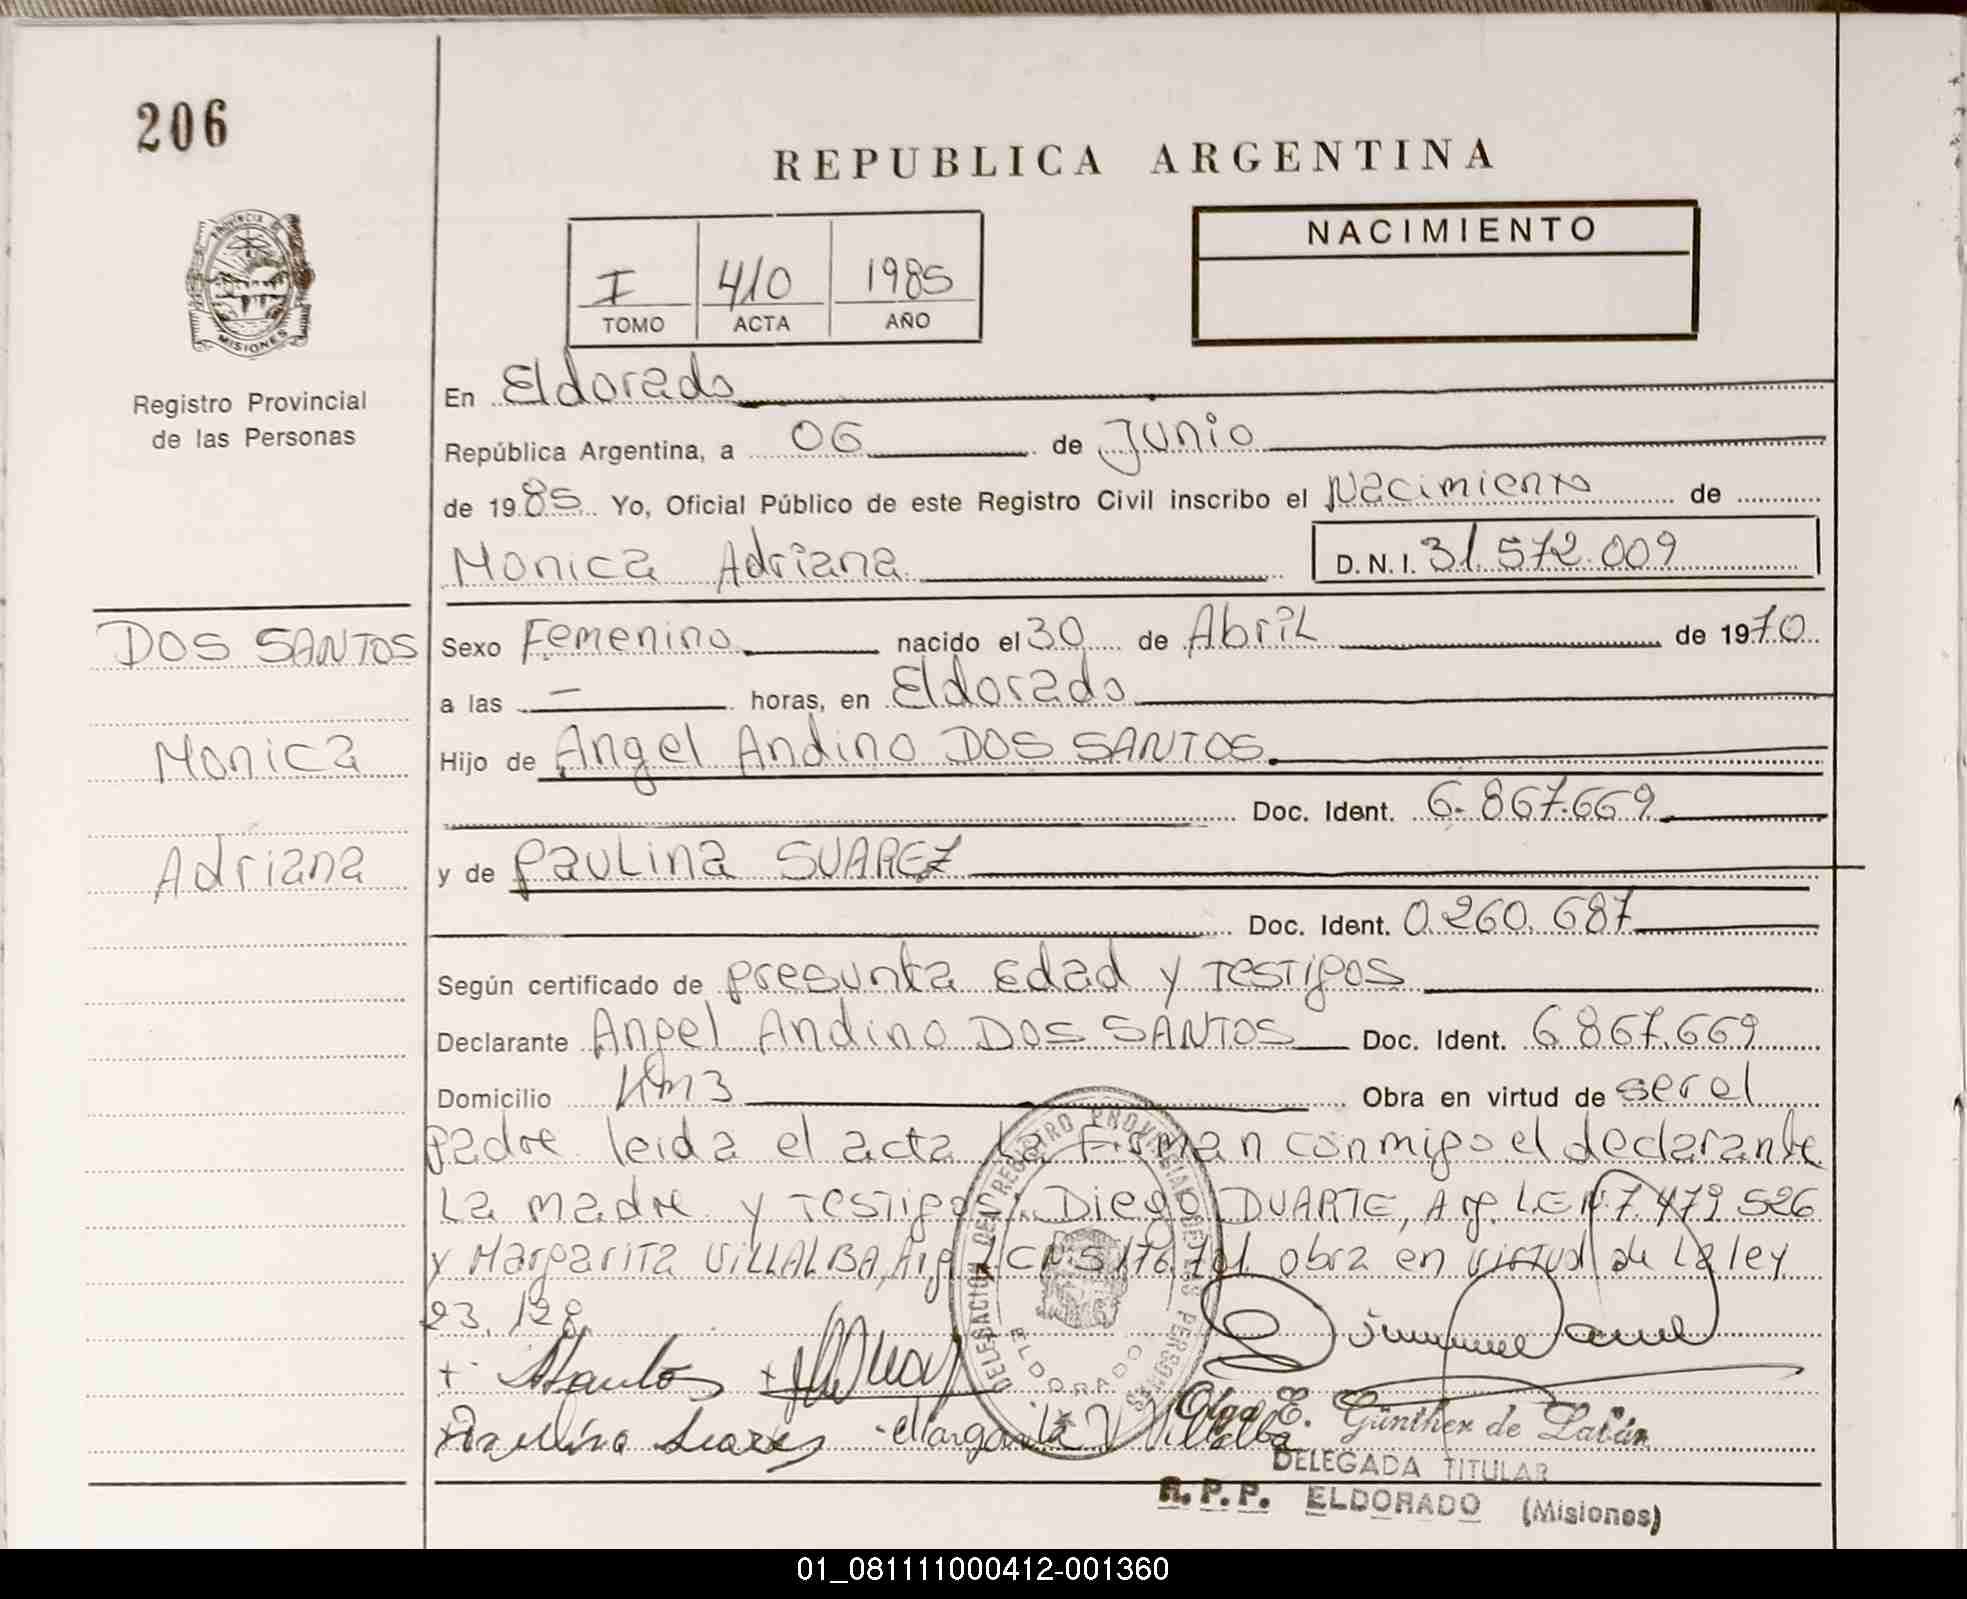 206
REPUBLICA ARGENTINA
PROVINCIA DE
MISIONES
I 410 1985
TOMO ACTA AÑO
NACIMIENTO
Registro Provincial
de las Personas
En Eldorado
República Argentina, a 06 de Junio
de 1985 Yo, Oficial Público de este Registro Civil inscribo el Nacimiento de
Monica Adriana D.N.I. 31.572.009
DOS SANTOS
Monica
Adriana
Sexo Femenino nacido el 30 de Abril de 1970
a las — horas, en Eldorado
Hijo de Angel Andino DOS SANTOS.
Doc. Ident. 6.867.669
y de Paulina SUAREZ
Doc. Ident. 0.260.687
Según certificado de presunta Edad y Testigos
Declarante Angel Andino DOS SANTOS Doc. Ident. 6.867.669
Domicilio Km 3 Obra en virtud de ser el
padre leida el acta la Firman conmigo el declarante
La madre y Testigo Diego DUARTE, Arg. L.E Nº 7.479.526
y Margarita VILLALBA, Arg LC Nº 5.176.701 obra en virtud de La ley
23.128
DELEGACION DEL REGISTRO PROVINCIAL DE LAS PERSONAS
ELDORADO
+ ASantos +
Paulina Suarez Margarita V Villalba
Olga E. Günther de Labún
DELEGADA TITULAR
R.P.P. ELDORADO (Misiones)
01_081111000412-001360